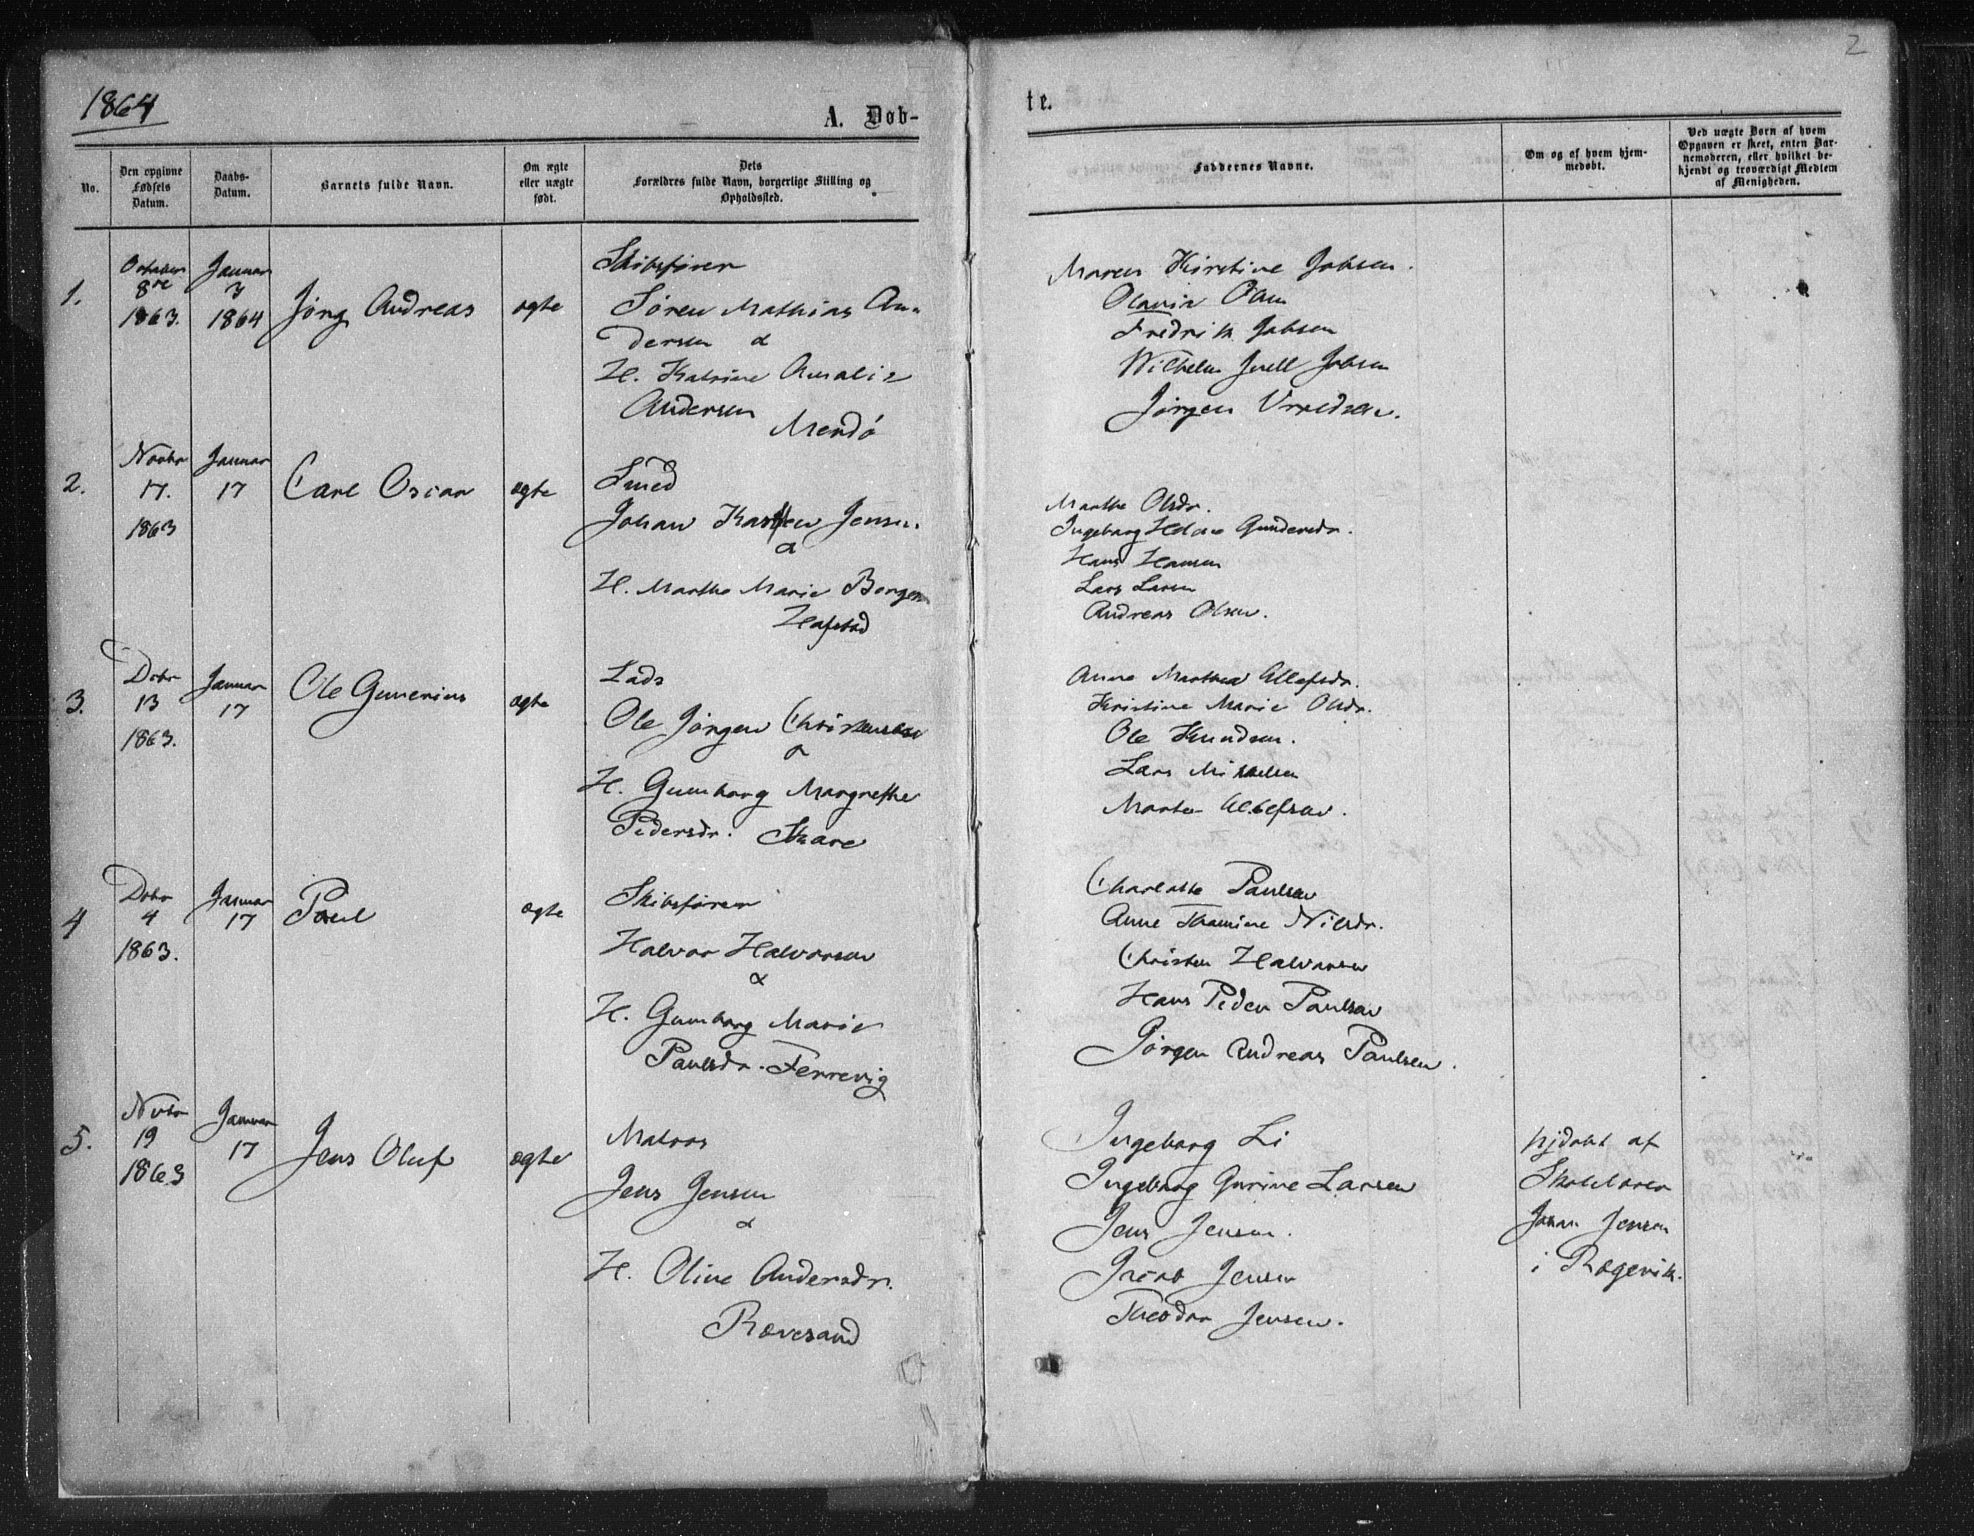 2
1864
A. Døb-
te.
No.
Den opgivne
Fødsels
Datum.
Daabs-
Datum.
Barnets fulde Navn.
Om ægte
eller uægte
født.
Dets
Forældres fulde Navn, borgerlige Stilling og
Opholdssted.
Faddernes Navne.
Om og af hvem hjem-
medøbt.
Ved uægte Børn af hvem
Opgaven er skeet, enten Bar-
nemoderen, eller hvilket be-
kjendt og troværdigt Medlem
af Menigheden.
1.
October
8de
1863.
Januar
3
1864
Jørg Andreas
ægte
Skibsfører
Søren Mathias An-
dersen &
H. Katrine Amalie
Andersen
Merdø
Maren Kirstine Jobsen.
Olavia Olsen
Fredrik Jobsen
Wilhelm Juell Jobsen
Jørgen
2.
Novbr
17.
1863
Januar
17
Carl Oscar
ægte
Smed
Johan Karsten Jensen.
&
H. Marthe Marie Borgen
Hafstad
Marthe Olsdr.
Ingeborg Helene Gundersdr.
Hans Hansen
Lars Larsen
Andreas Olsen.
3.
Dcbr
13
1863.
Januar
17
Ole Gunerius
ægte
Lods
Ole Jørgen Christensen
&
H. Gunborg Margrethe
Pedersdr. Skare
Anne Marthea Ellefsdr.
Kristine Marie Olsdr.
Ole Knudsen.
Lars Mikkelsen
Ellefsen.
4
Dcbr
4
1863.
Januar
17
Paul
ægte
Skibsfører
Halvor Halvorsen
&
H. Gunborg Marie
Paulsdr. Færrevig
Charlotte Paulsen
Anne Thomine Nilsdr.
Christen Halvorsen
Hans Peder Paulsen
Jørgen Andreas Paulsen.
5.
Nvbr
19
1863
Januar
17
Jens Oluf
ægte
Matros
Jens Jensen
&
H. Olive Andersdr.
Rævesand
Ingeborg Li
Ingeborg Gurine Larsen
Jens Jensen.
Jensen
Theodor Jensen.
hjdøbt af
Skolelærer
Johan Jensen
i Rægevik.